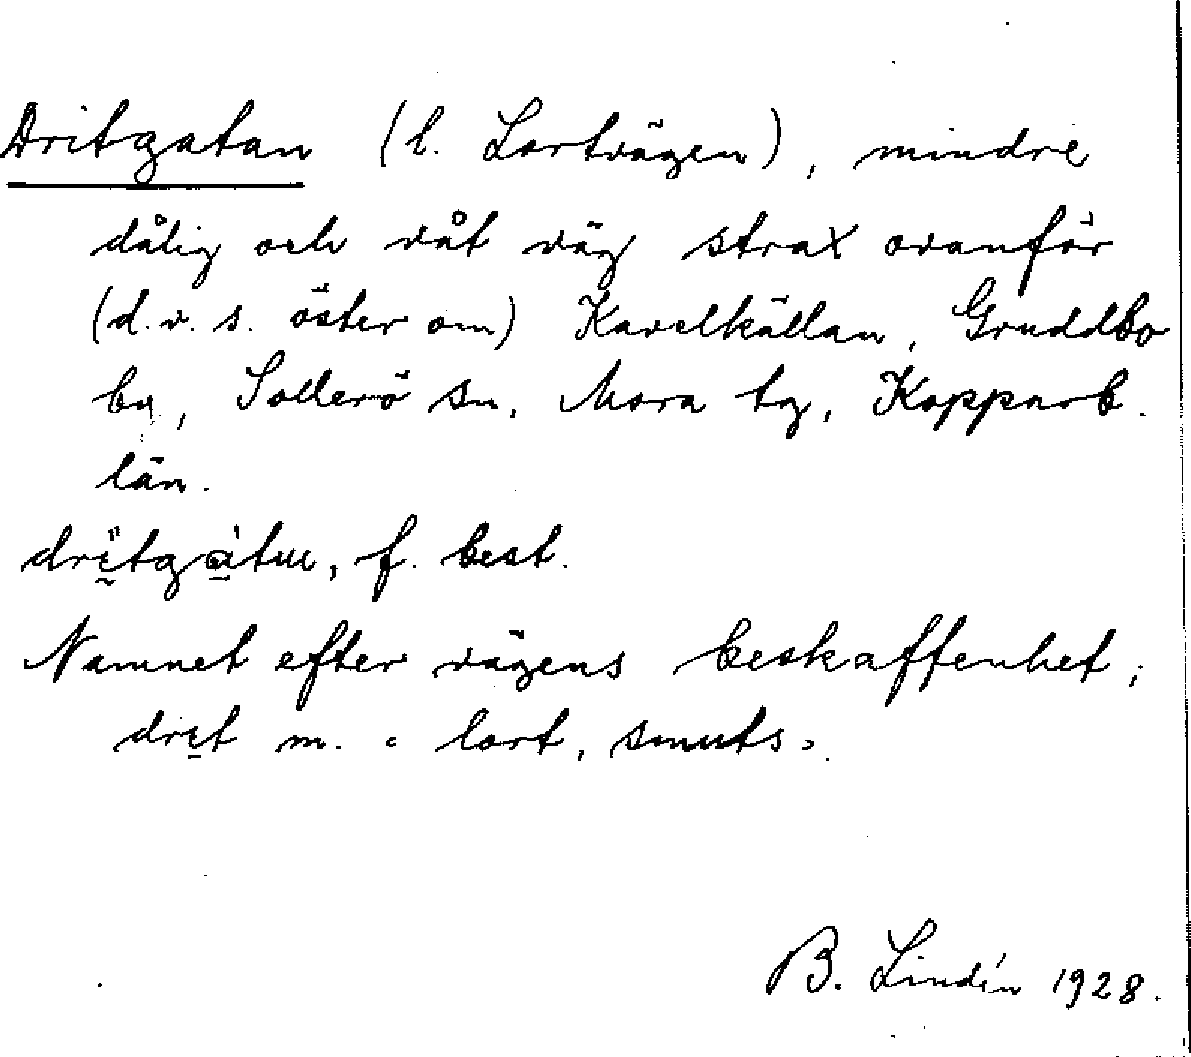 Dritgatan (l. Lortvägen), mindre
dålig och våt väg strax ovanför
(d.v.s. öster om) Kavelkällan, Gruddbo
by, Sollerö sn, Mora tg, Kopparb.
län.
f. best.
Namnet efter vägens beskaffenhet;
drit m. "lort, smuts".
B. Lindén 1928.